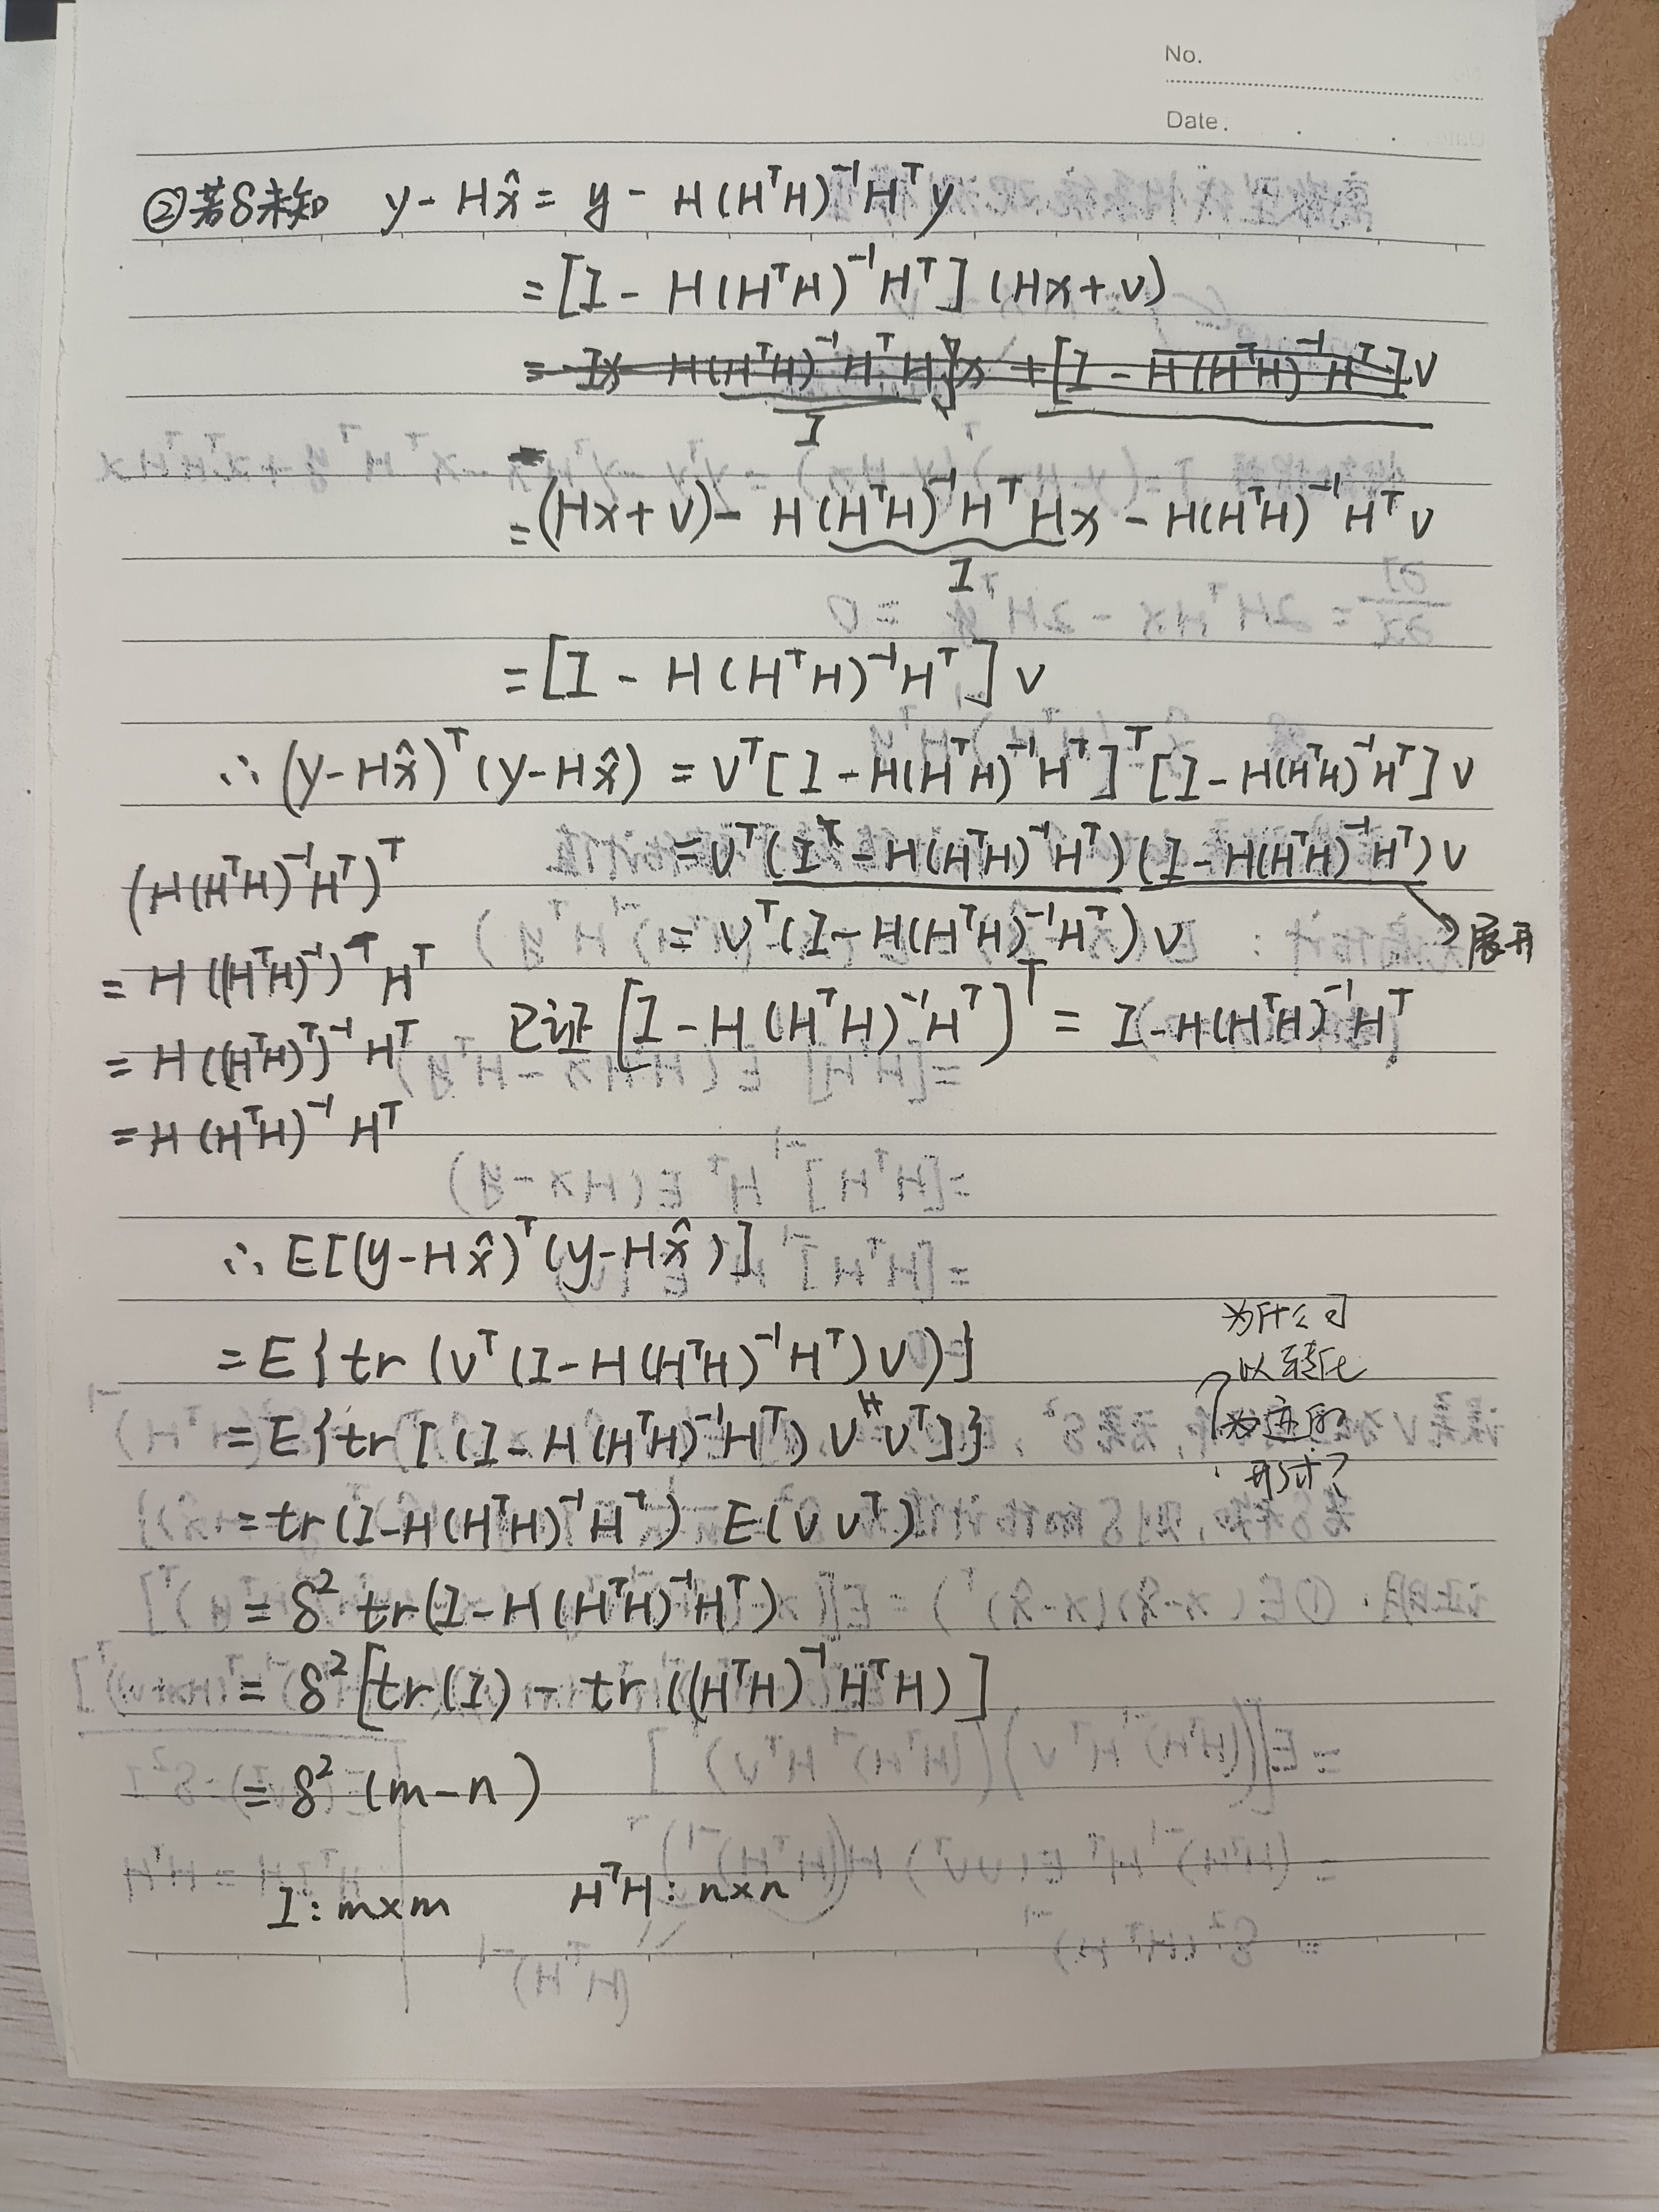 No.
Date.
②若δ未知 y - Hx̂ = y - H(HᵀH)⁻¹Hᵀy
= [I - H(HᵀH)⁻¹Hᵀ] (Hx+v)
= Ix - H(HᵀH)⁻¹HᵀH]x + [I - H(HᵀH)⁻¹Hᵀ]v
I
= (Hx+v) - H(HᵀH)⁻¹HᵀHx - H(HᵀH)⁻¹Hᵀv
I
= [I - H(HᵀH)⁻¹Hᵀ] v
∴ (y-Hx̂)ᵀ(y-Hx̂) = vᵀ[I-H(HᵀH)⁻¹Hᵀ]ᵀ[I-H(HᵀH)⁻¹Hᵀ]v
= vᵀ(I-H(HᵀH)⁻¹Hᵀ)(I-H(HᵀH)⁻¹Hᵀ)v
= vᵀ(I-H(HᵀH)⁻¹Hᵀ)v
展开
已证 [I-H(HᵀH)⁻¹Hᵀ]ᵀ = I-H(HᵀH)⁻¹Hᵀ
(H(HᵀH)⁻¹Hᵀ)ᵀ
= H((HᵀH)⁻¹)ᵀHᵀ
= H((HᵀH)ᵀ)⁻¹Hᵀ
= H(HᵀH)⁻¹Hᵀ
∴ E[(y-Hx̂)ᵀ(y-Hx̂)]
= E{tr(vᵀ(I-H(HᵀH)⁻¹Hᵀ)v)}
= E{tr[(I-H(HᵀH)⁻¹Hᵀ)vvᵀ]}
= tr(I-H(HᵀH)⁻¹Hᵀ) E(vvᵀ)
= δ² tr(I-H(HᵀH)⁻¹Hᵀ)
= δ²[tr(I) - tr((HᵀH)⁻¹HᵀH)]
= δ²(m-n)
为什么可
以转化
为迹的
形式?
I: m×m HᵀH: n×n